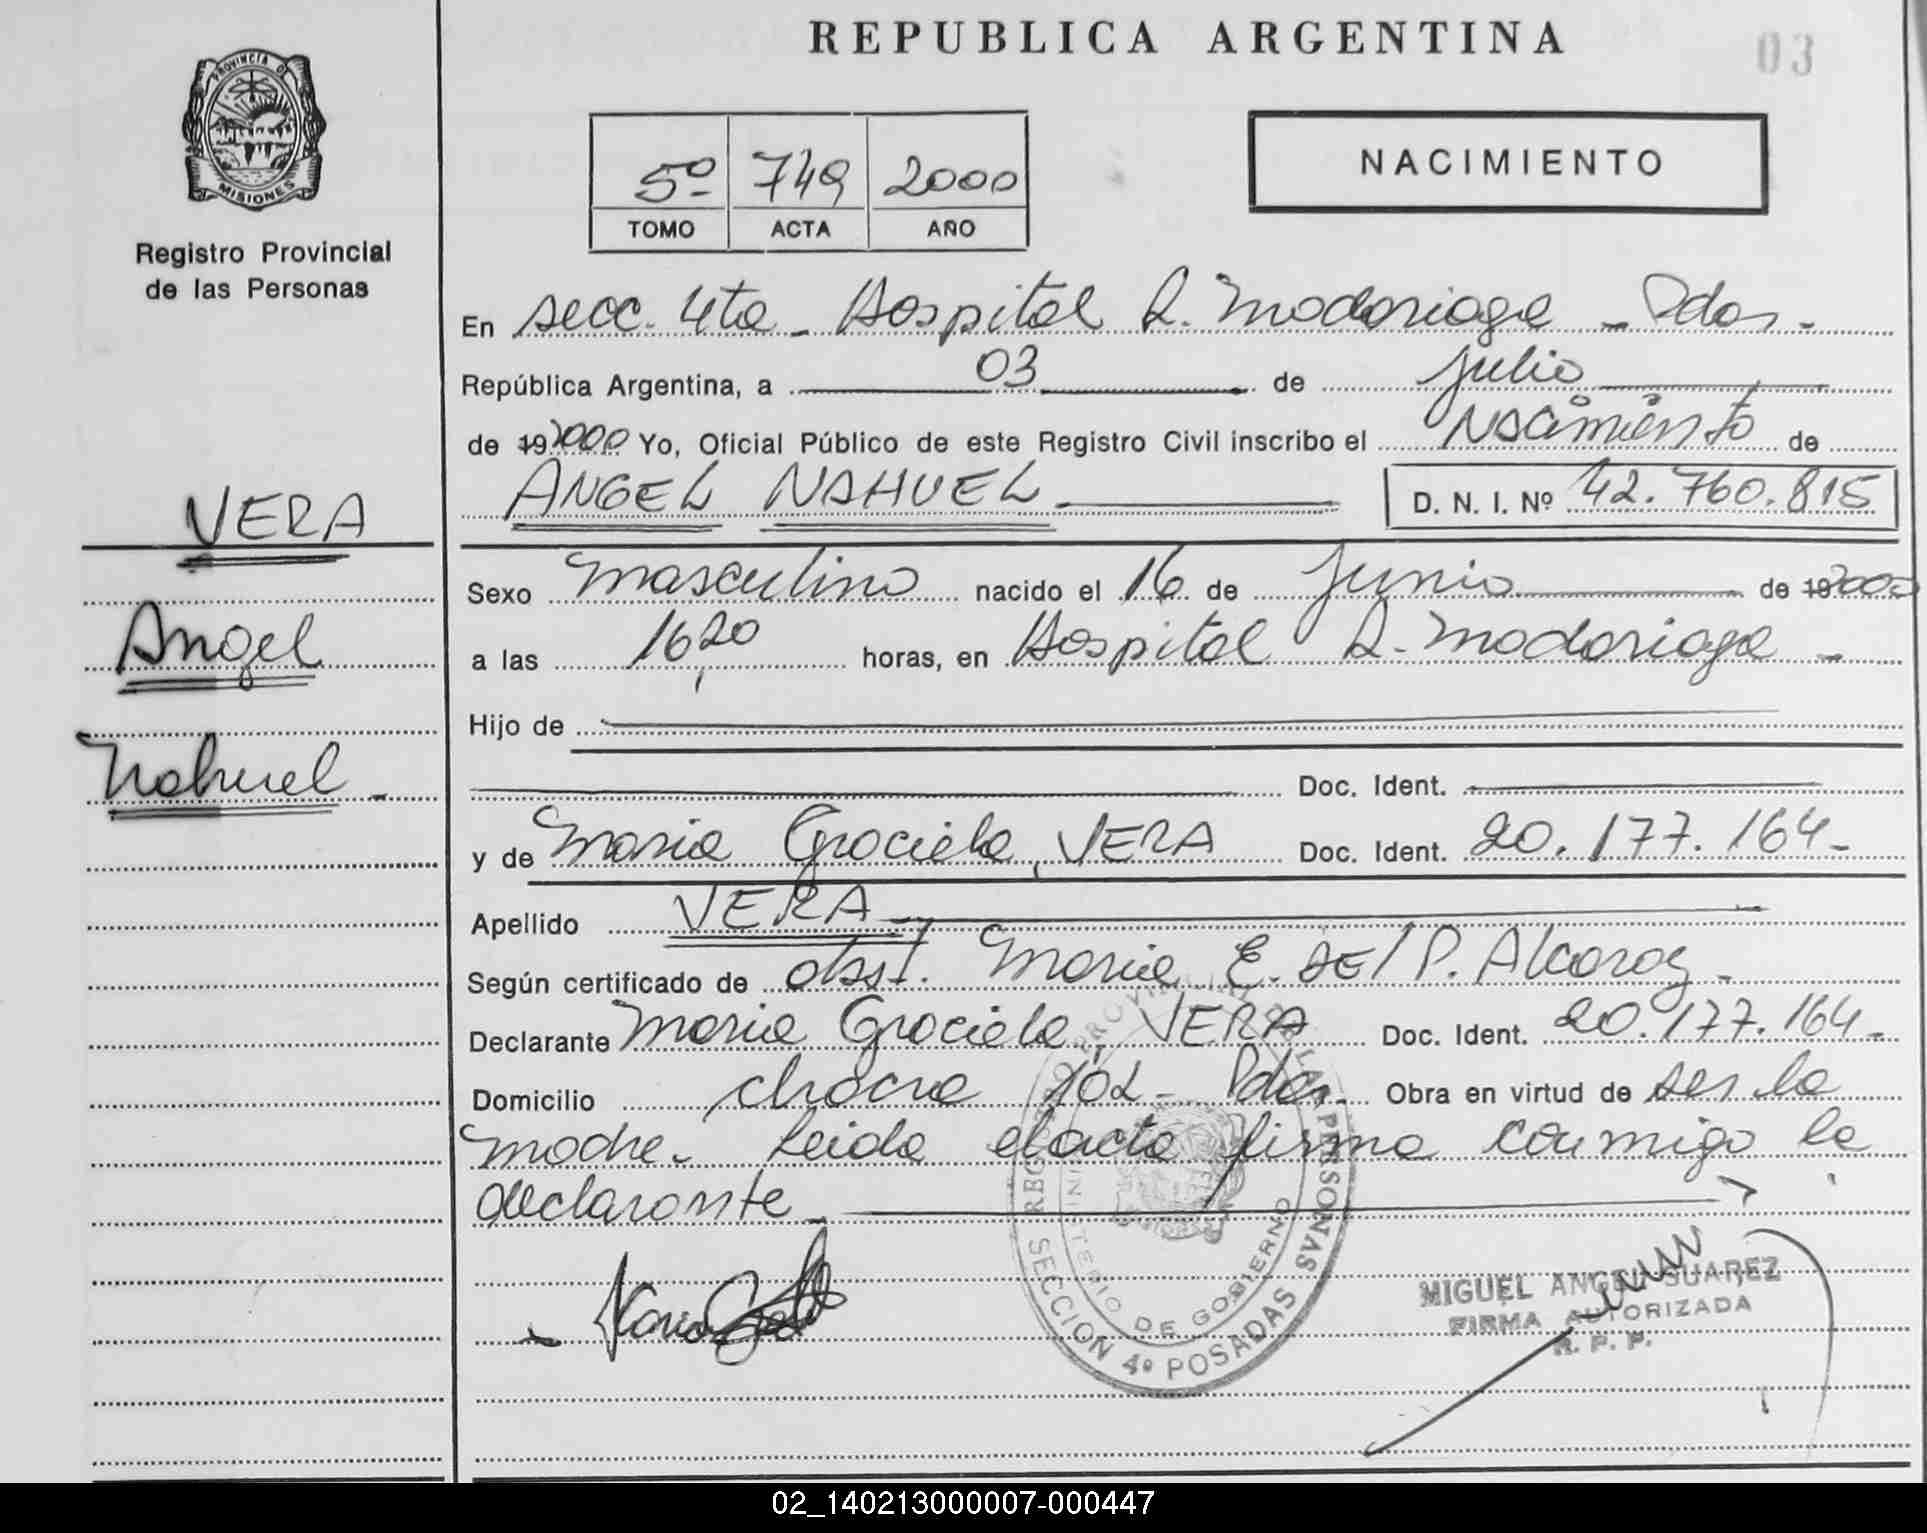 REPUBLICA ARGENTINA
03
PROVINCIA DE
MISIONES
Registro Provincial
de las Personas
5º 749 2000
TOMO ACTA AÑO
NACIMIENTO
En secc. 4ta - Hospital R. Madariaga - Pdas -
República Argentina, a 03 de julio
de 19 2000 Yo, Oficial Público de este Registro Civil inscribo el Nacimiento de
ANGEL NAHUEL D. N. I. Nº 42.760.815
VERA
Angel
Nahuel -
Sexo masculino nacido el 16 de junio de 19 2000
a las 16,20 horas, en Hospital R. Madariaga -
Hijo de
Doc. Ident.
y de Maria Graciela, VERA Doc. Ident. 20.177.164 -
Apellido VERA
Según certificado de obst. Maria E. DEL P. Alcaraz -
Declarante Maria Graciela, VERA Doc. Ident. 20.177.164 -
Domicilio chacra 102 - Pdas. Obra en virtud de ser la
madre. Leida el acta firma conmigo la
declarante -
REGISTRO PROVINCIAL DE LAS PERSONAS
MINISTERIO DE GOBIERNO
SECCION 4º POSADAS
MIGUEL ANGEL SUAREZ
FIRMA AUTORIZADA
R. P. P.
02_140213000007-000447